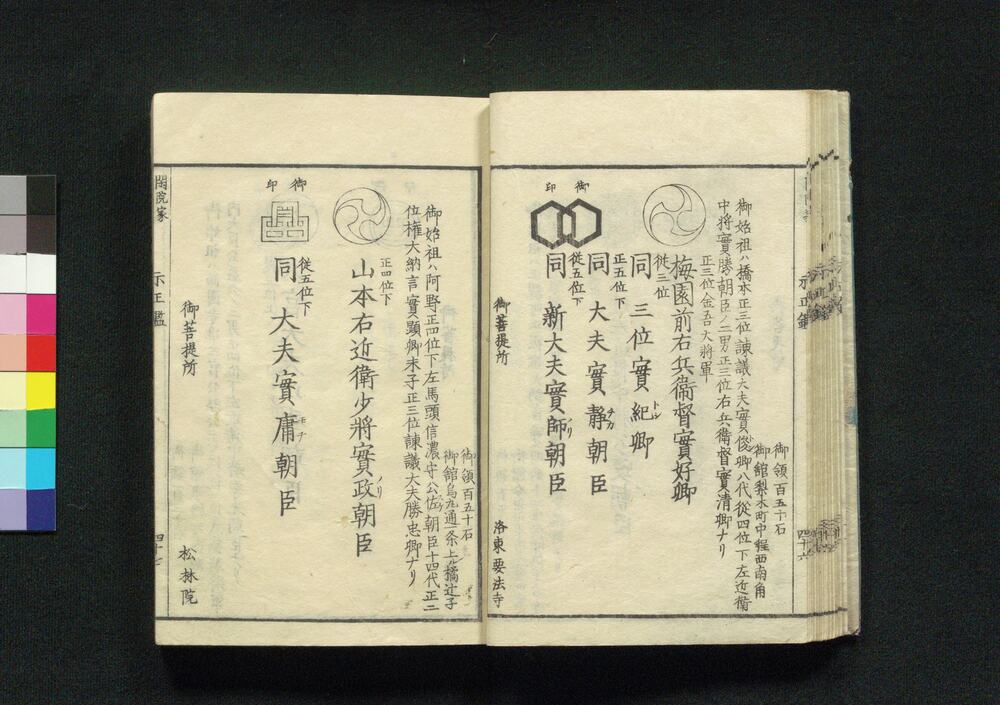 御領百五十石
御館梨木町中程西南角
御始祖ハ橋本正三位諫議大夫實俊卿八代従四位下左近衛
中将實勝朝臣ノ二男正三位右兵衛督實清卿ナリ
正三位金吾大将軍
梅園前右兵衛督實好卿
従三位
同三位實紀卿
正五位下
同大夫實静朝臣
従五位下
同新大夫實師朝臣
御印
御菩提所
洛東要法寺
四十六
御領百五十石
御館烏丸通一条上ル橘辻子
御始祖ハ阿野正四位下左馬頭信濃守公佐朝臣十四代正二
位権大納言實顕卿末子正三位諫議大夫勝忠卿ナリ
正四位下
山本右近衛少将實政朝臣
従五位下
同大夫實庸朝臣
御印
御菩提所
松林院
閑院家
示正鑑
四十七